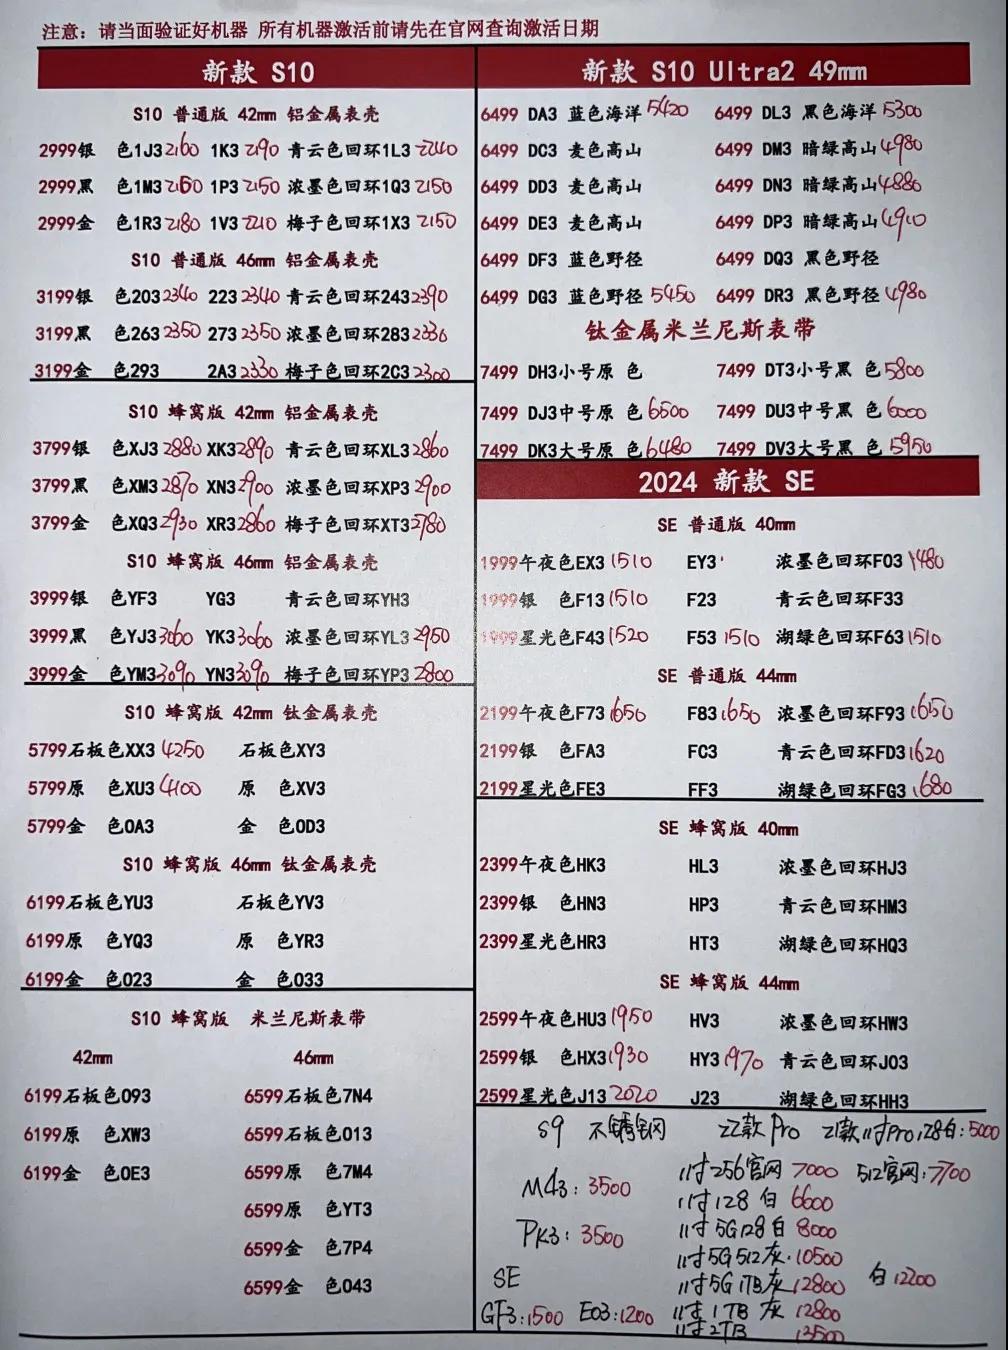 注意：请当面验证好机器 所有机器激活前请先在官网查询激活日期
新款 S10
S10 普通版 42mm 铝合金属表壳
2999银 色1J3 2160 1K3 2190 青云色回环1L3 2240
2999黑 色1M3 2160 1P3 2150 浓墨色回环1Q3 2150
2999金 色1R3 2180 1V3 2210 梅子色回环1X3 2150
S10 普通版 46mm 铝金属表壳
3199银 色203 2340 223 2340 青云色回环243 2390
3199黑 色263 2350 273 2350 浓墨色回环283 2330
3199金 色293 2A3 2330 梅子色回环2C3 2300
S10 蜂窝版 42mm 铝金属表壳
3799银 色XJ3 2880 XK3 2890 青云色回环XL3 2860
3799黑 色XM3 2870 XN3 2900 浓墨色回环XP3 2900
3799金 色XQ3 2930 XR3 2860 梅子色回环XT3 2780
S10 蜂窝版 46mm 铝金属表壳
3999银 色YF3 YG3 青云色回环YH3
3999黑 色YJ3 3060 YK3 3060 浓墨色回环YL3 2950
3999金 色YM3 3090 YN3 3090 梅子色回环YP3 2800
S10 蜂窝版 42mm 钛金属表壳
5799石板色XX3 4250 石板色XY3
5799原 色XU3 4100 原 色XV3
5799金 色0A3 金 色0D3
S10 蜂窝版 46mm 钛金属表壳
6199石板色YU3 石板色YV3
6199原 色YQ3 原 色YR3
6199金 色023 金 色033
S10 蜂窝版 米兰尼斯表带
42mm 46mm
6199石板色093 6599石板色7N4
6199原 色XW3 6599石板色013
6199金 色0E3 6599原 色7M4
6599原 色YT3
6599金 色7P4
6599金 色043
新款 S10 Ultra2 49mm
6499 DA3 蓝色海洋 5420 6499 DL3 黑色海洋 5300
6499 DC3 麦色高山 6499 DM3 暗绿高山 4980
6499 DD3 麦色高山 6499 DN3 暗绿高山 4880
6499 DE3 麦色高山 6499 DP3 暗绿高山 4910
6499 DF3 蓝色野径 6499 DQ3 黑色野径
6499 DG3 蓝色野径 5450 6499 DR3 黑色野径 4980
钛金属米兰尼斯表带
7499 DH3小号原 色 7499 DT3小号黑 色 5800
7499 DJ3中号原 色 6500 7499 DU3中号黑 色 6000
7499 DK3大号原 色 6480 7499 DV3大号黑 色 5950
2024 新款 SE
SE 普通版 40mm
1999午夜色EX3 1510 EY3 浓墨色回环F03 1480
1999银 色F13 1510 F23 青云色回环F33
1999星光色F43 1520 F53 1510 湖绿色回环F63 1510
SE 普通版 44mm
2199午夜色F73 1650 F83 1650 浓墨色回环F93 1650
2199银 色FA3 FC3 青云色回环FD3 1620
2199星光色FE3 FF3 湖绿色回环FG3 1680
SE 蜂窝版 40mm
2399午夜色HK3 HL3 浓墨色回环HJ3
2399银 色HN3 HP3 青云色回环HM3
2399星光色HR3 HT3 湖绿色回环HQ3
SE 蜂窝版 44mm
2599午夜色HU3 1950 HV3 浓墨色回环HW3
2599银 色HX3 1930 HY3 1970 青云色回环J03
2599星光色J13 2020 J23 湖绿色回环HH3
S9 不锈钢 22款 Pro 21款11寸Pro128白：5000
M43：3500 11寸256官网 7000 512官网：7700
11寸128 白 6600
PK3：3500 11寸5G128白 8000
11寸5G512灰 10500
SE 11寸5G 1TB灰 12800 白 12200
GF3：1500 E03：1200 11寸 1TB 灰 12800
11寸2TB 13500